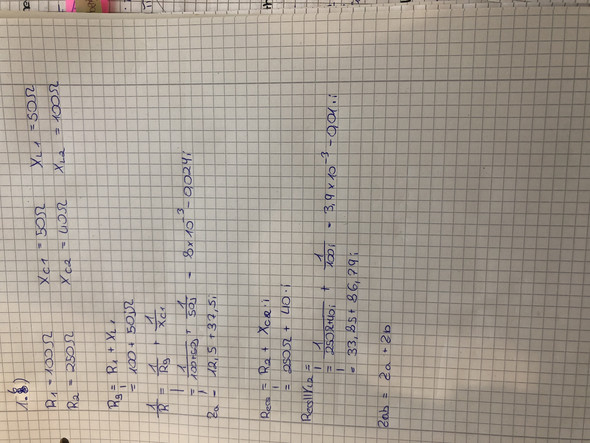 1.6)
R1 = 100Ω XC1 = 50Ω XL1 = 50Ω
R2 = 250Ω XC2 = 40Ω XL2 = 100Ω
R3 = R1 + XL1
= 100 + 50Ω
1/R = 1/R3 + 1/XC1
= 1/100+50j + 1/50j = 8x10^-3 - 0,024i
Za = 12,5 + 37,5i
= R2 + XC2·i
= 250Ω + 40·i
=
= 1/250Ω+40i + 1/100i = 3,9x10^-3 - 0,01·i
= 33,85 + 86,79i
Zab = Za + Zb